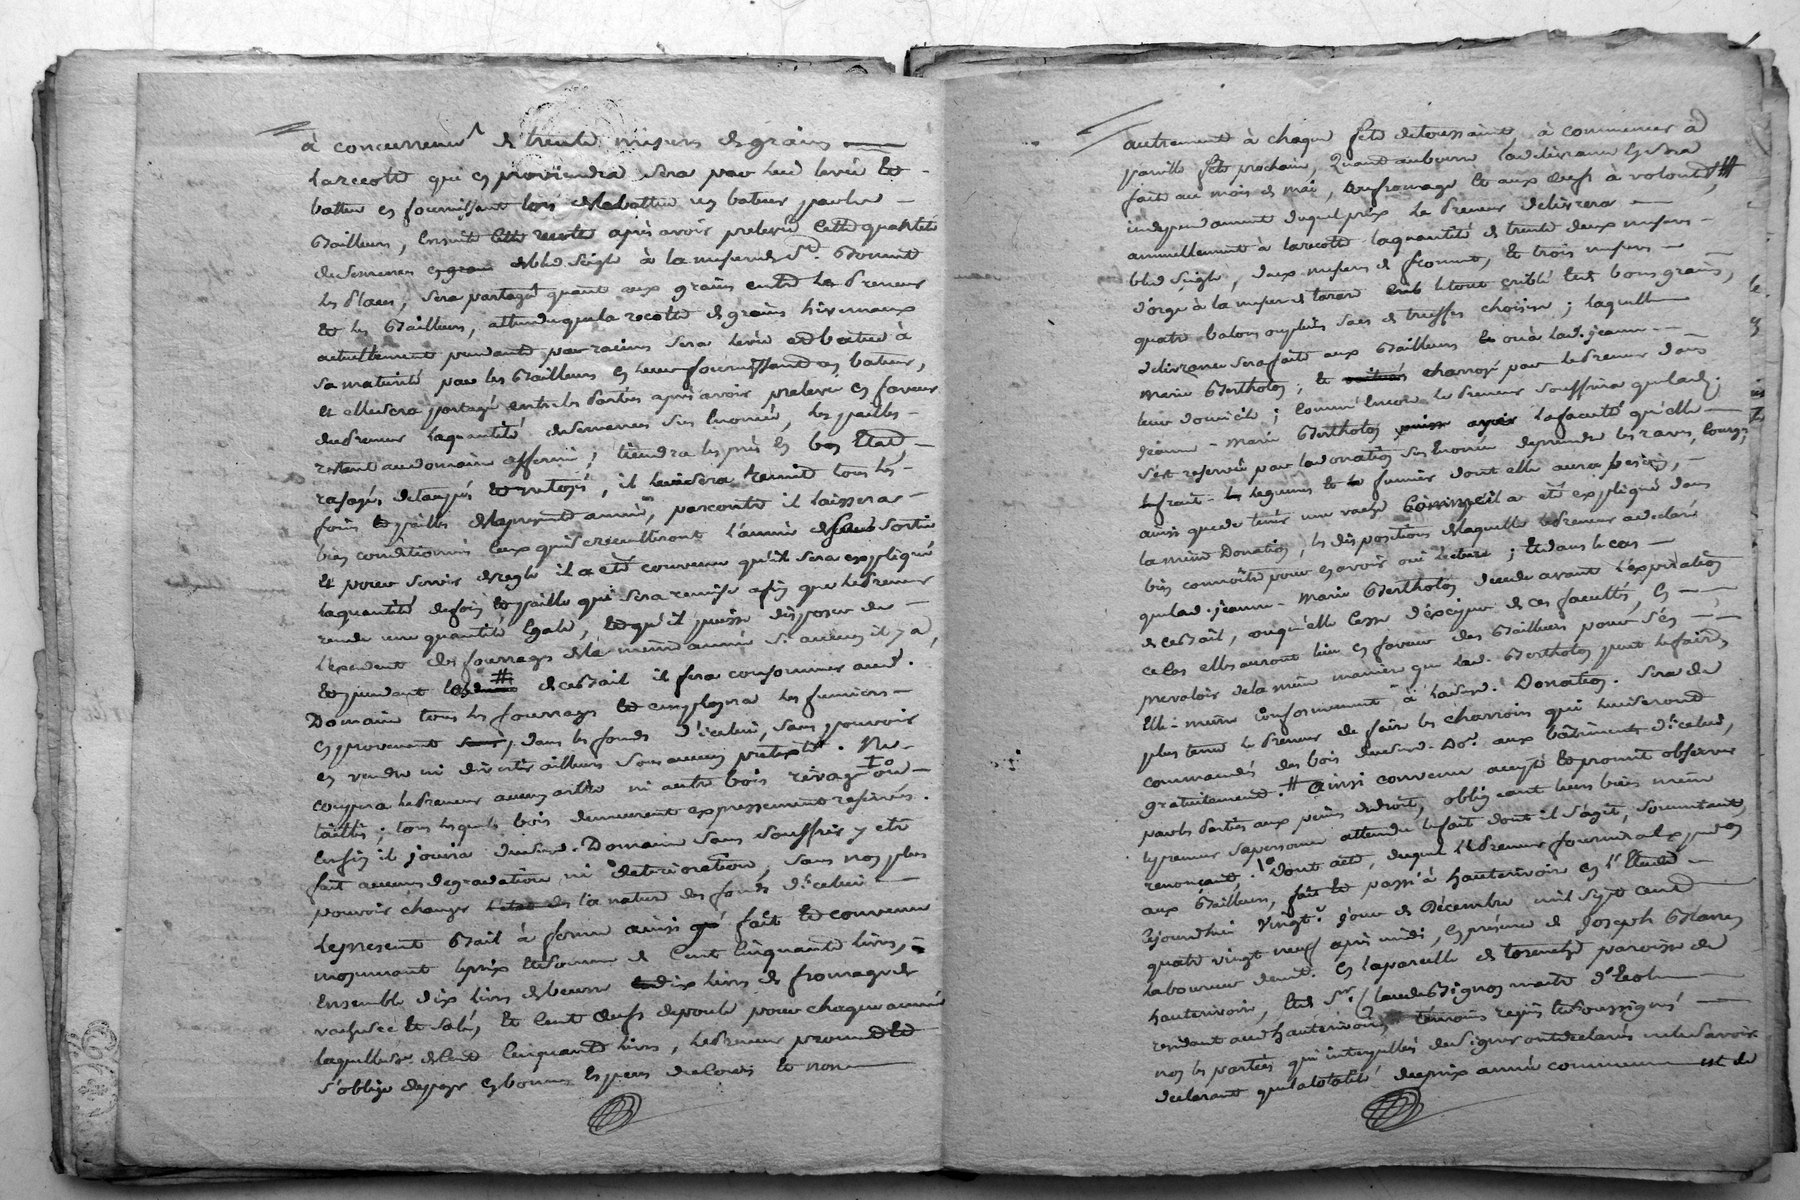 à concurrence de trente mesures de grains
La recolte qui en proviendra sera par lui levée et
battue en fournissant lors de la battue un bateur par les
Bailleurs, ensuite cette recolte après avoir prelevé cette quantité
de semences en grain de bled seigle à la mesure de St. Bonnet
les Places, sera partagé quant aux grains entre le Preneur
et les Bailleurs, attendu que la recolte de grains hivernaux
actuellement pendante par racines sera levée et batue à
sa maturité par les Bailleurs en leur fournissant un bateur,
et elle sera partagé entre les Parties après avoir prelevé en faveur
du Preneur la quantité de semences sus enoncée, les pailles
restant au domaine affermé ; tiendra les prés en bon Etat
rasages detaupés et netoyés, il lui sera remit tous les
foins et pailles de la presente année, par contre il laissera
bien conditionnés ceux qui se recueilleront l'année de sa sortie
Et pour servir de regle il a été convenu qu'il sera expliqué
la quantité de foin et paille qui sera remise afin que le Preneur
rende une quantité egale, et qu'il puisse disposer de
l'excedent des fourrages de la même année si aucun il y a,
et pendant # de ce Bail il fera consommer aud.
Domaine tous les fourrages et employera les fumiers
en provenant dans les fonds d'icelui, sans pouvoir
en vendre ni divertir ailleurs sous aucun pretexte. Ne
coupera le Preneur aucun arbre ni autre bois revage ou
taillis ; tous lesquels bois demeurent expressement reservés.
Enfin il jouira dudit Domaine sans souffrir y etre
fait aucune degradation ni deterioration, sans non plus
pouvoir changer l'état de la nature des fonds d'icelui
Le present Bail à ferme ainsi fait et convenu
moyennant le prix et somme de Cent Cinquante livres,
Ensemble dix livres de beurre et dix livres de fromage de
vache sec et salé, et Cent Oeufs de poule pour chaque année
laquelle de Cent Cinquante livres, le Preneur promet et
s'oblige de payer en bonnes Especes de Cours et non
autrement à chaque fete de toussaint, à commencer à
pareille fete prochaine, Quant au beurre la delivrance en sera
faite au mois de mai, du fromage et aux oeufs à volonté, #
independamment duquel prix le Preneur delivrera
annuellement à la recolte la quantité de trente deux mesures
bled seigle, deux mesures de froment, et trois mesures
d'orge à la mesure de tarare le tout criblé et de bons grains,
quatre balons ou pleins sacs de truffes choisies ; laquelle
delivrance sera faite aux Bailleurs ou à lad. jeanne
Marie Bertholon, et charroyé par le Preneur dans
leur domicile ; Comm' Encore le Preneur souffrira que lad.
jeanne-Marie Bertholon la faculté qu'elle
s'est reservée par la donation sus enoncée de prendre les raves, Courges,
Le fruit les legumes et le fumier dont elle aura besoin,
ainsi que de tenir une vache Comme il a été expliqué dans
la même Donation, les dispositions de laquelle le Preneur a declaré
bien connoître pour en avoir oui lecture ; Et dans le cas
que lad. jeanne-Marie Bertholon decede avant l'expiration
de ce Bail, ou qu'elle cesse d'exciper de ces facultés, en
ce cas elles auront lieu en faveur des Bailleurs pour s'en
prevaloir de la même maniere que lad. Bertholon peut le faire
Elle-même Conformement à ladite. Donation. Sera de
plus tenu le Preneur de faire les charrois qui lui seront
commandés des bois dudit. Do.e aux bâtiments d'icelui,
gratuitement. # Ainsi convenu accepté et promit observer
par les Parties aux peines de droit, obligeant leurs biens même
le preneur sa personne attendu le fait dont il s'agit, soumettant,
renonçant. Dont acte, duquel le Preneur fournira expedition
aux Bailleurs, fait et passé à hauterivoire en l'Etude
Cejourdhui vingt jour de Décembre mil sept cent
quatre vingt neuf après midi, en presence de Joseph
Laboureur demt. en la parcelle de torenche paroisse de
hauterivoire, et de Sr. Claude Bignon maitre d'Ecole
residant aud. hauterivoire temoins requis et Soussignés
non les parties qui interpellés de signer ont declarés ne le savoir
declarant que la totalité du prix année commune est de